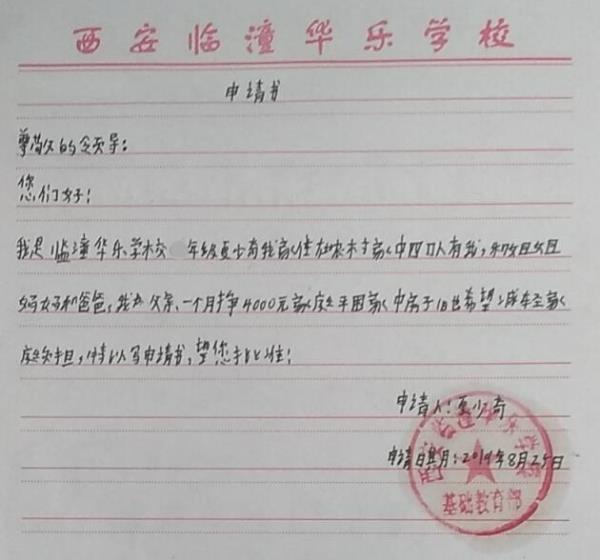 西安临潼华乐学校
申请书
尊敬的领导:
您们好!
我是临潼华乐学校 年级夏少奇我家住在 家中四口人有我,和姐姐
妈妈和爸爸,我父亲、一个月挣4000元家庭平困家中房子旧也希望减轻家
庭负担,特以写申请书,望您批准!
申请人:夏少奇
申请日期:2019年8月25日
西安临潼华乐学校
基础教育部